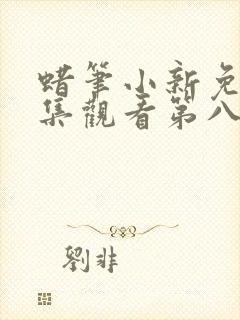 蜡筆小新免
集觀看第八
劉非